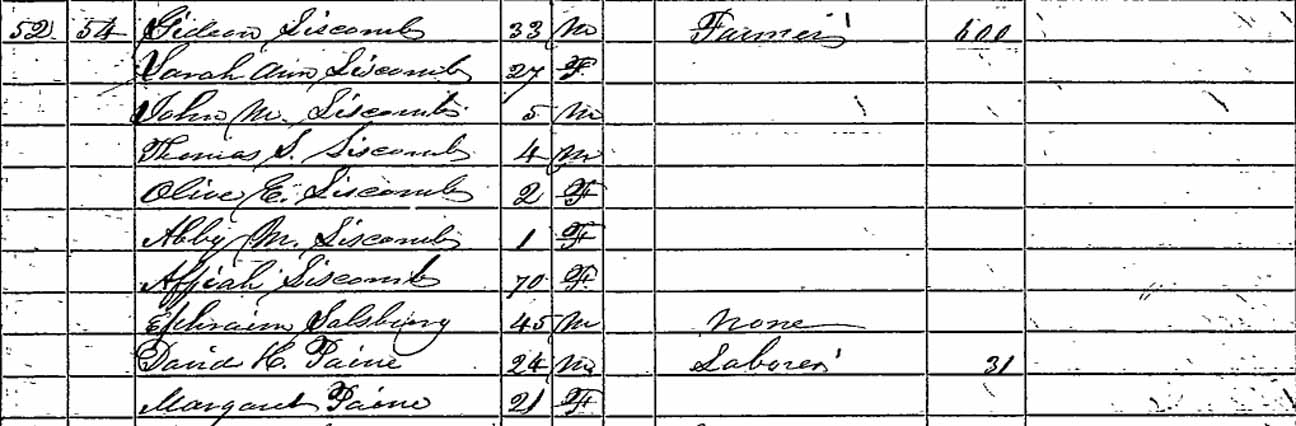 52 54 Gideon Liscomb 33 M Farmer 600
Sarah Ann Liscomb 27 F
John M. Liscomb 5 M
Thomas S. Liscomb 4 M
Olive E. Liscomb 2 F
Abby M. Liscomb 1 F
Affiah Liscomb 70 F
Ephraim Salsbury 45 M None
David H. Paine 24 M Laborer 31
Margaret Paine 21 F